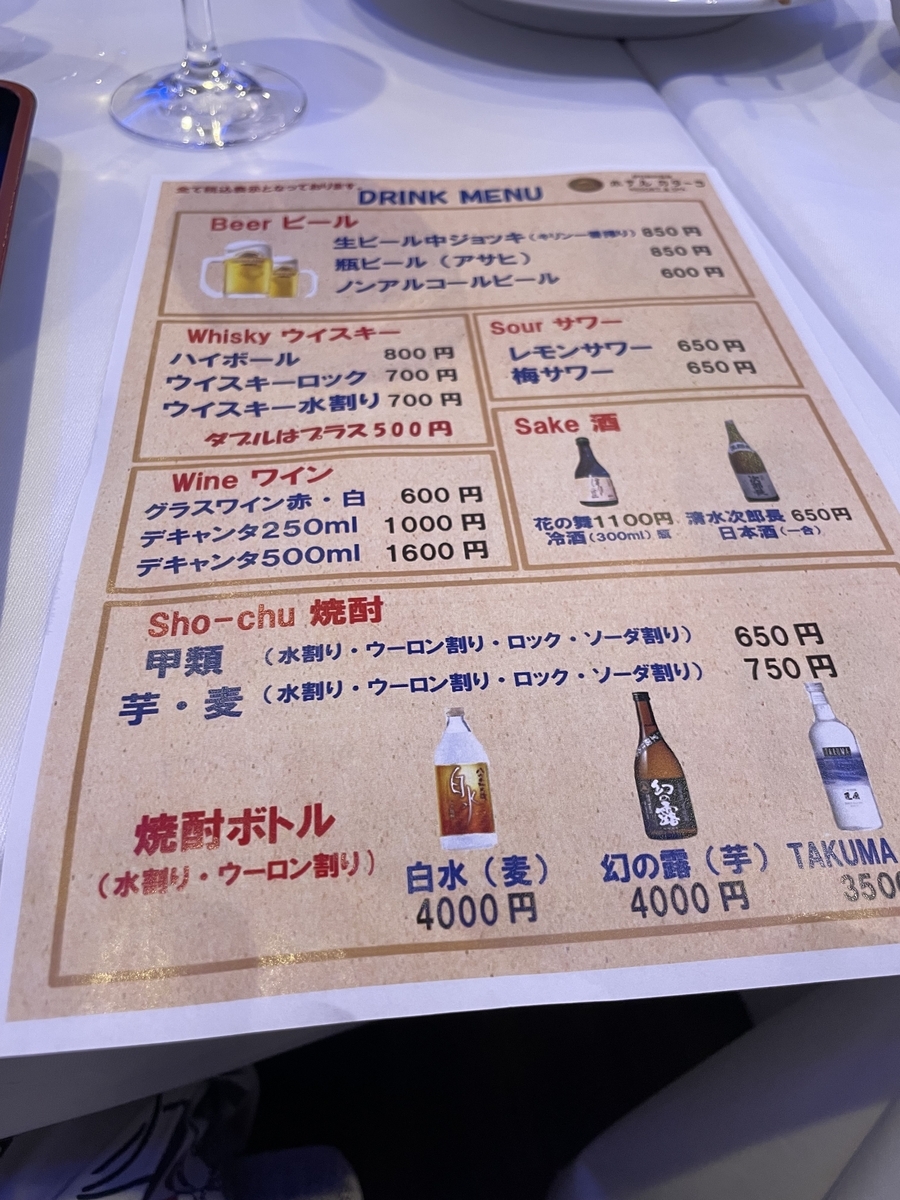 全て税込表示となっております。
DRINK MENU
ホテル カターラ
Beer ビール
生ビール中ジョッキ(キリン一番搾り) 850円
瓶ビール(アサヒ) 850円
ノンアルコールビール 600円
Whisky ウイスキー
ハイボール 800円
ウイスキーロック 700円
ウイスキー水割り 700円
ダブルはプラス500円
Sour サワー
レモンサワー 650円
梅サワー 650円
Wine ワイン
グラスワイン赤・白 600円
デキャンタ250ml 1000円
デキャンタ500ml 1600円
Sake 酒
花の舞1100円
冷酒(300ml)瓶
清水次郎長 650円
日本酒(一合)
Sho-chu 焼酎
甲類 (水割り・ウーロン割り・ロック・ソーダ割り) 650円
芋・麦 (水割り・ウーロン割り・ロック・ソーダ割り) 750円
焼酎ボトル
(水割り・ウーロン割り)
白水
幻の露
TAKUMA
白水(麦)
4000円
幻の露(芋)
4000円
TAKUMA
3500